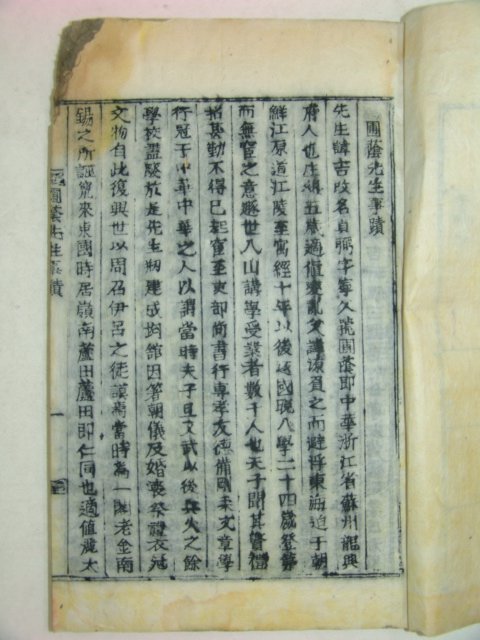 圃蔭先生事蹟
先生諱吉改名貞躬字寧久號圃蔭即中華浙江省蘇州龍興
府人也生纔五歲適値變亂父諱湲負之而避浮東海迫于朝
鮮江原道江陵至寓經十年以後返國晚入學二十四歲登第
而無宦之意遯世入山講學受業者數千人也天子聞其賢禮
招甚勤不得已起宦至吏部尙書行專孝友德備剛柔文章學
行冠于中華中華之人以謂當時夫子且文武以後兵火之餘
學校盡廢於是先生剏建成均館因著朝儀及婚喪祭禮衣冠
文物自此復興世以周召伊呂之徒謨焉當時爲一國老金南
錫之所誣竄來東國時居嶺南蘆田蘆田即仁同也適値瀧太
圃蔭先生事蹟
一